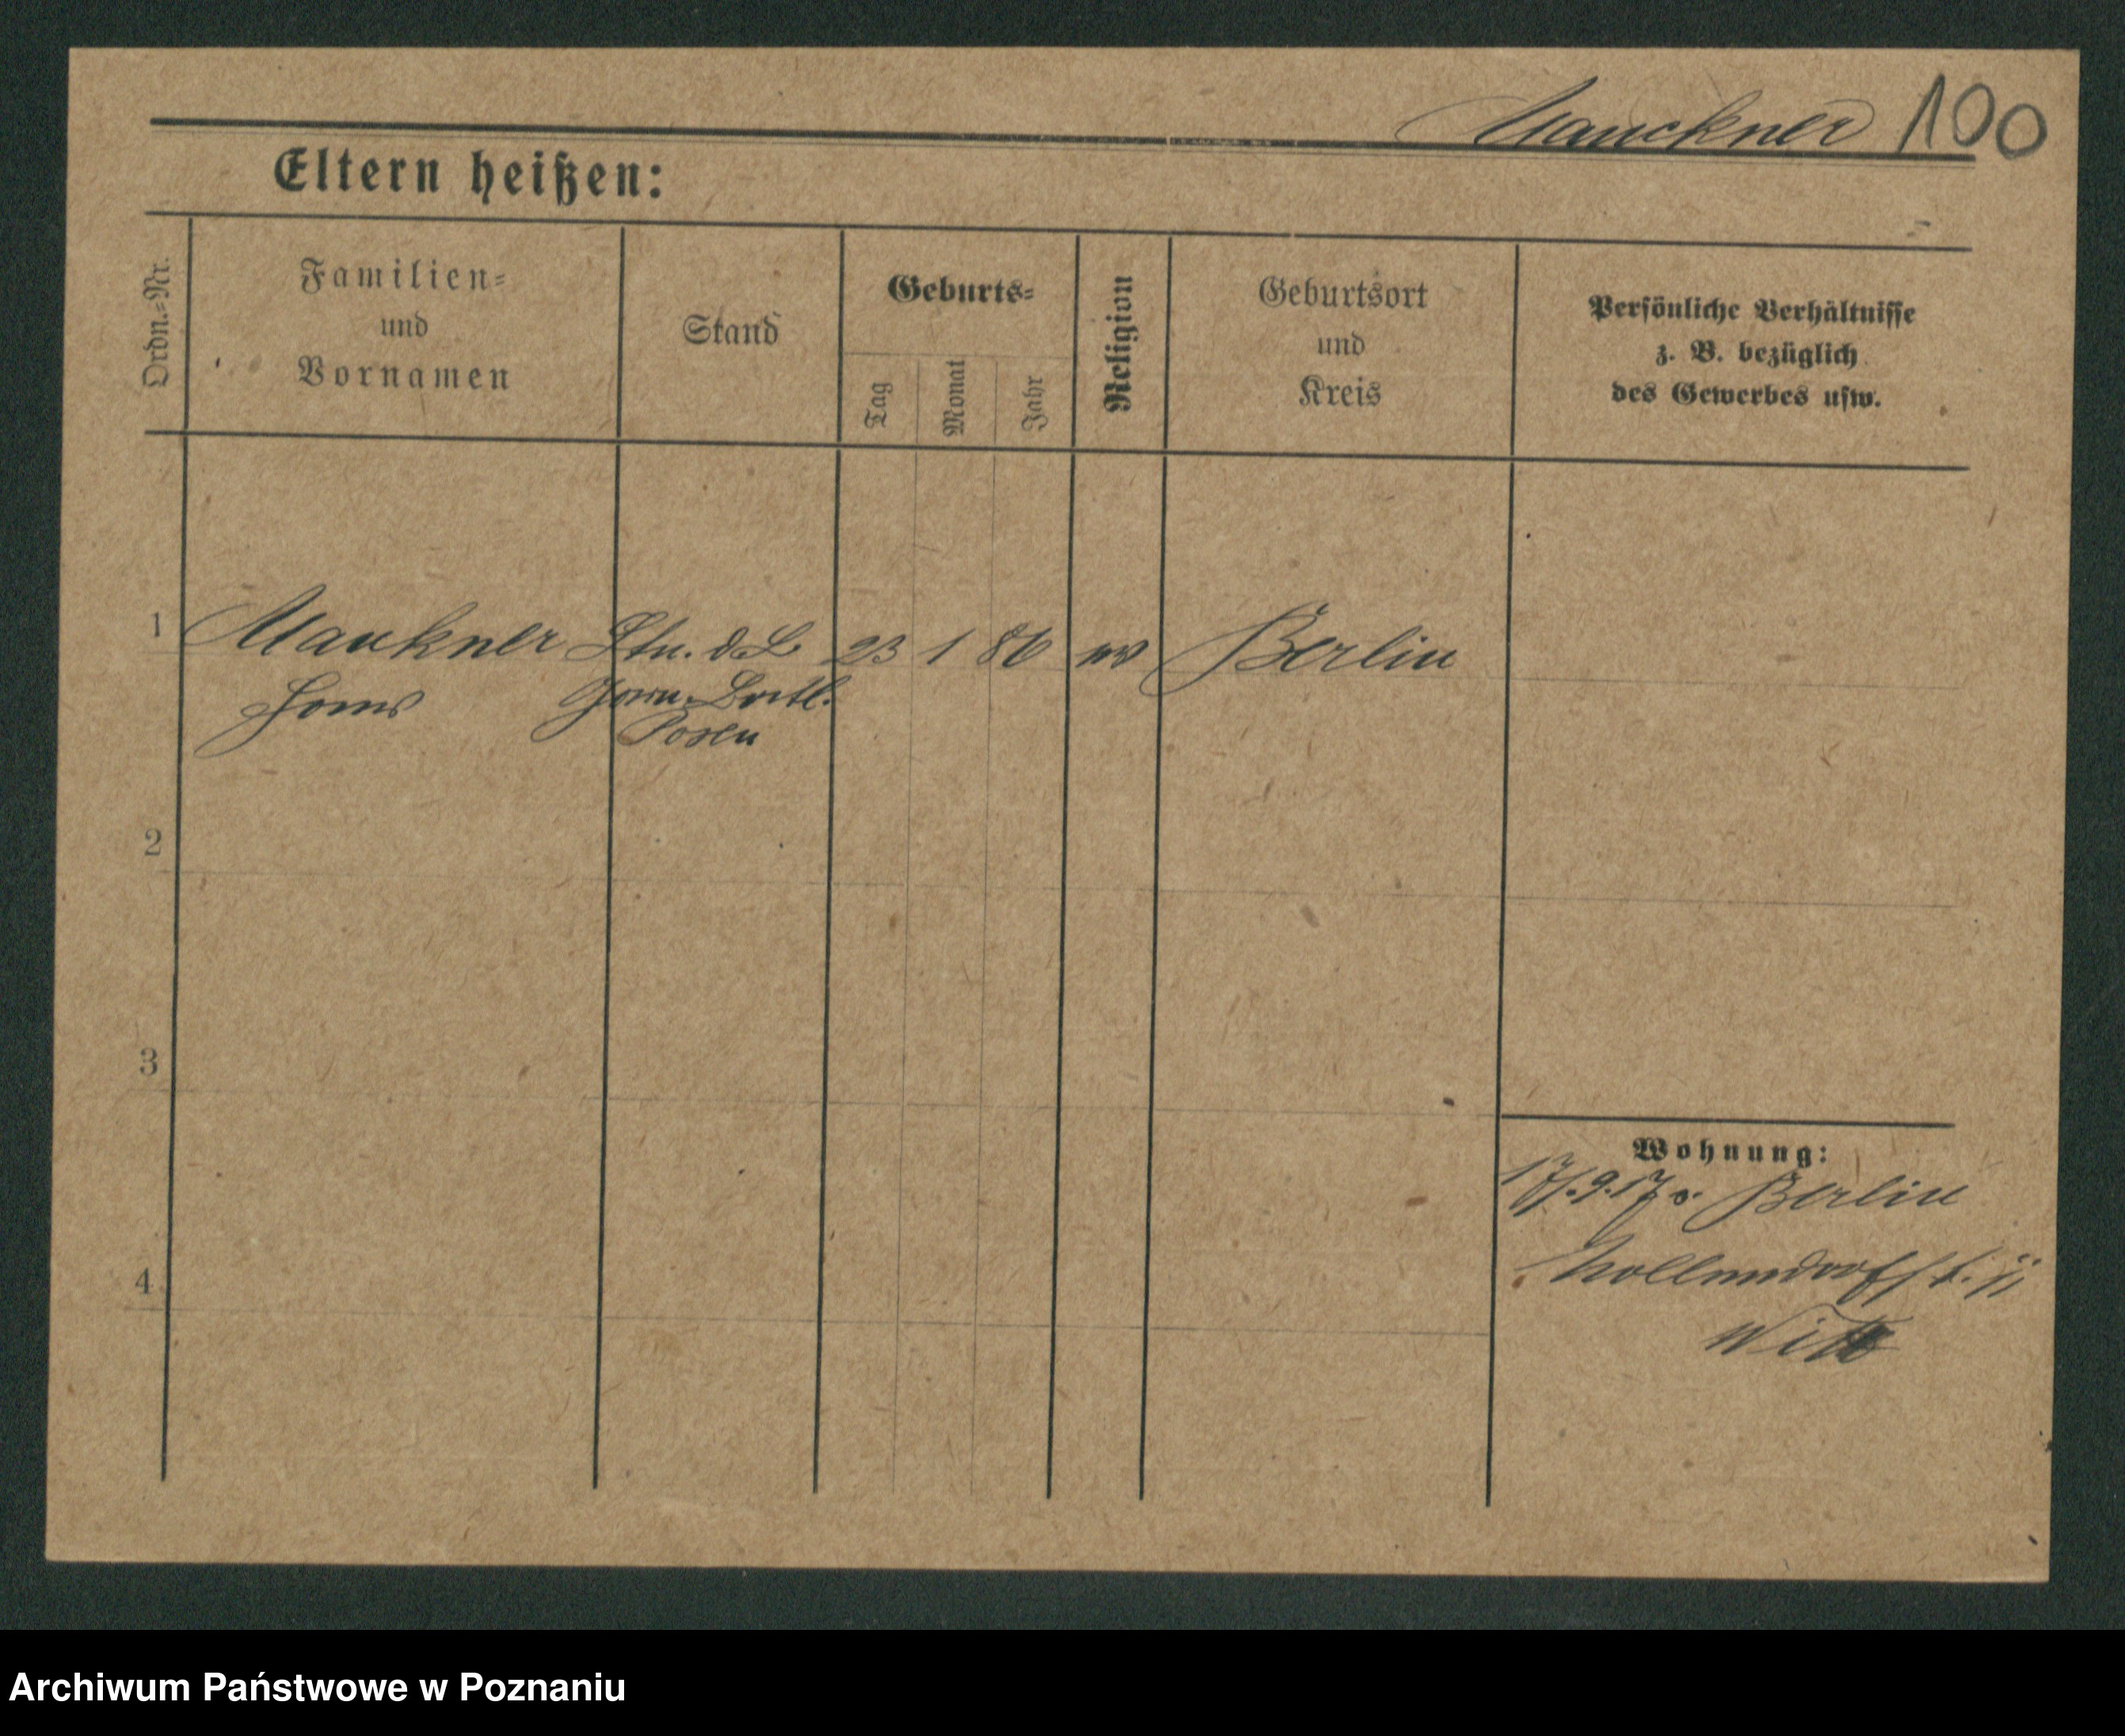 Mauckner 100
Eltern heißen:
Ordn.=Nr.
Familien=
und
Vornamen
Stand
Geburts=
Tag
Monat
Jahr
Religion
Geburtsort
und
Kreis
Persönliche Verhältnisse
z. B. bezüglich
des Gewerbes usw.
1 Maukner Ltn. d. L. 23 1 86 ev Berlin
Hans
Posen
2
3
4
Wohnung:
17/.9.17 v. Berlin
Nollendorfst.
Witt
Archiwum Państwowe w Poznaniu